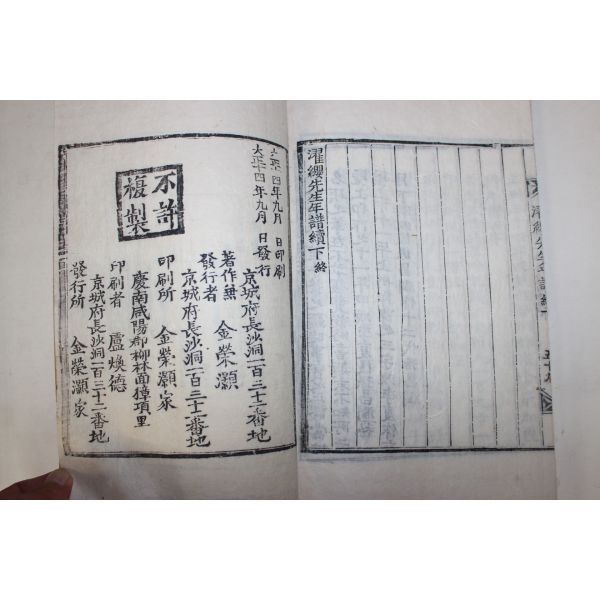 濯纓先生年譜續
濯纓先生年譜續下 終
大正十四年九月 日印刷
大正十四年九月 日發行
京城府長沙洞一百三十二番地
著作兼
發行者 金榮灝
京城府長沙洞一百三十二番地
印刷所 金榮灝家
慶南咸陽郡柳林面獐項里
印刷者 盧煥德
京城府長沙洞一百三十二番地
發行所 金榮灝家
不許
複製